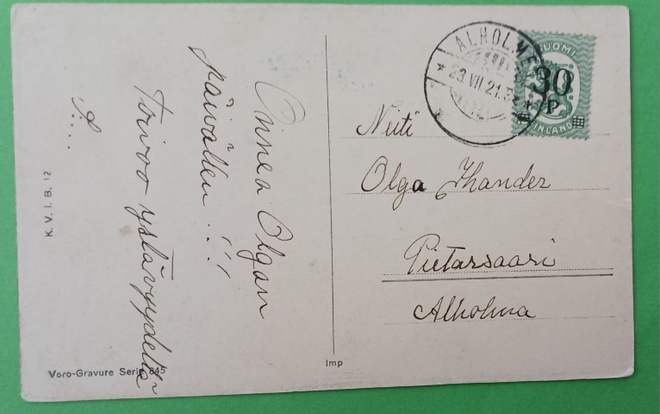 Onnea Olgan
päivällen !!!
Toivoo ystävyydellä
A....
K. V. I. B. 12
Voro-Gravure Serie 845
Imp
ALHOLMEN
23.VII.21.
SUOMI
30
P
FINLAND
Neiti
Olga Thander
Pietarsaari
Alholma